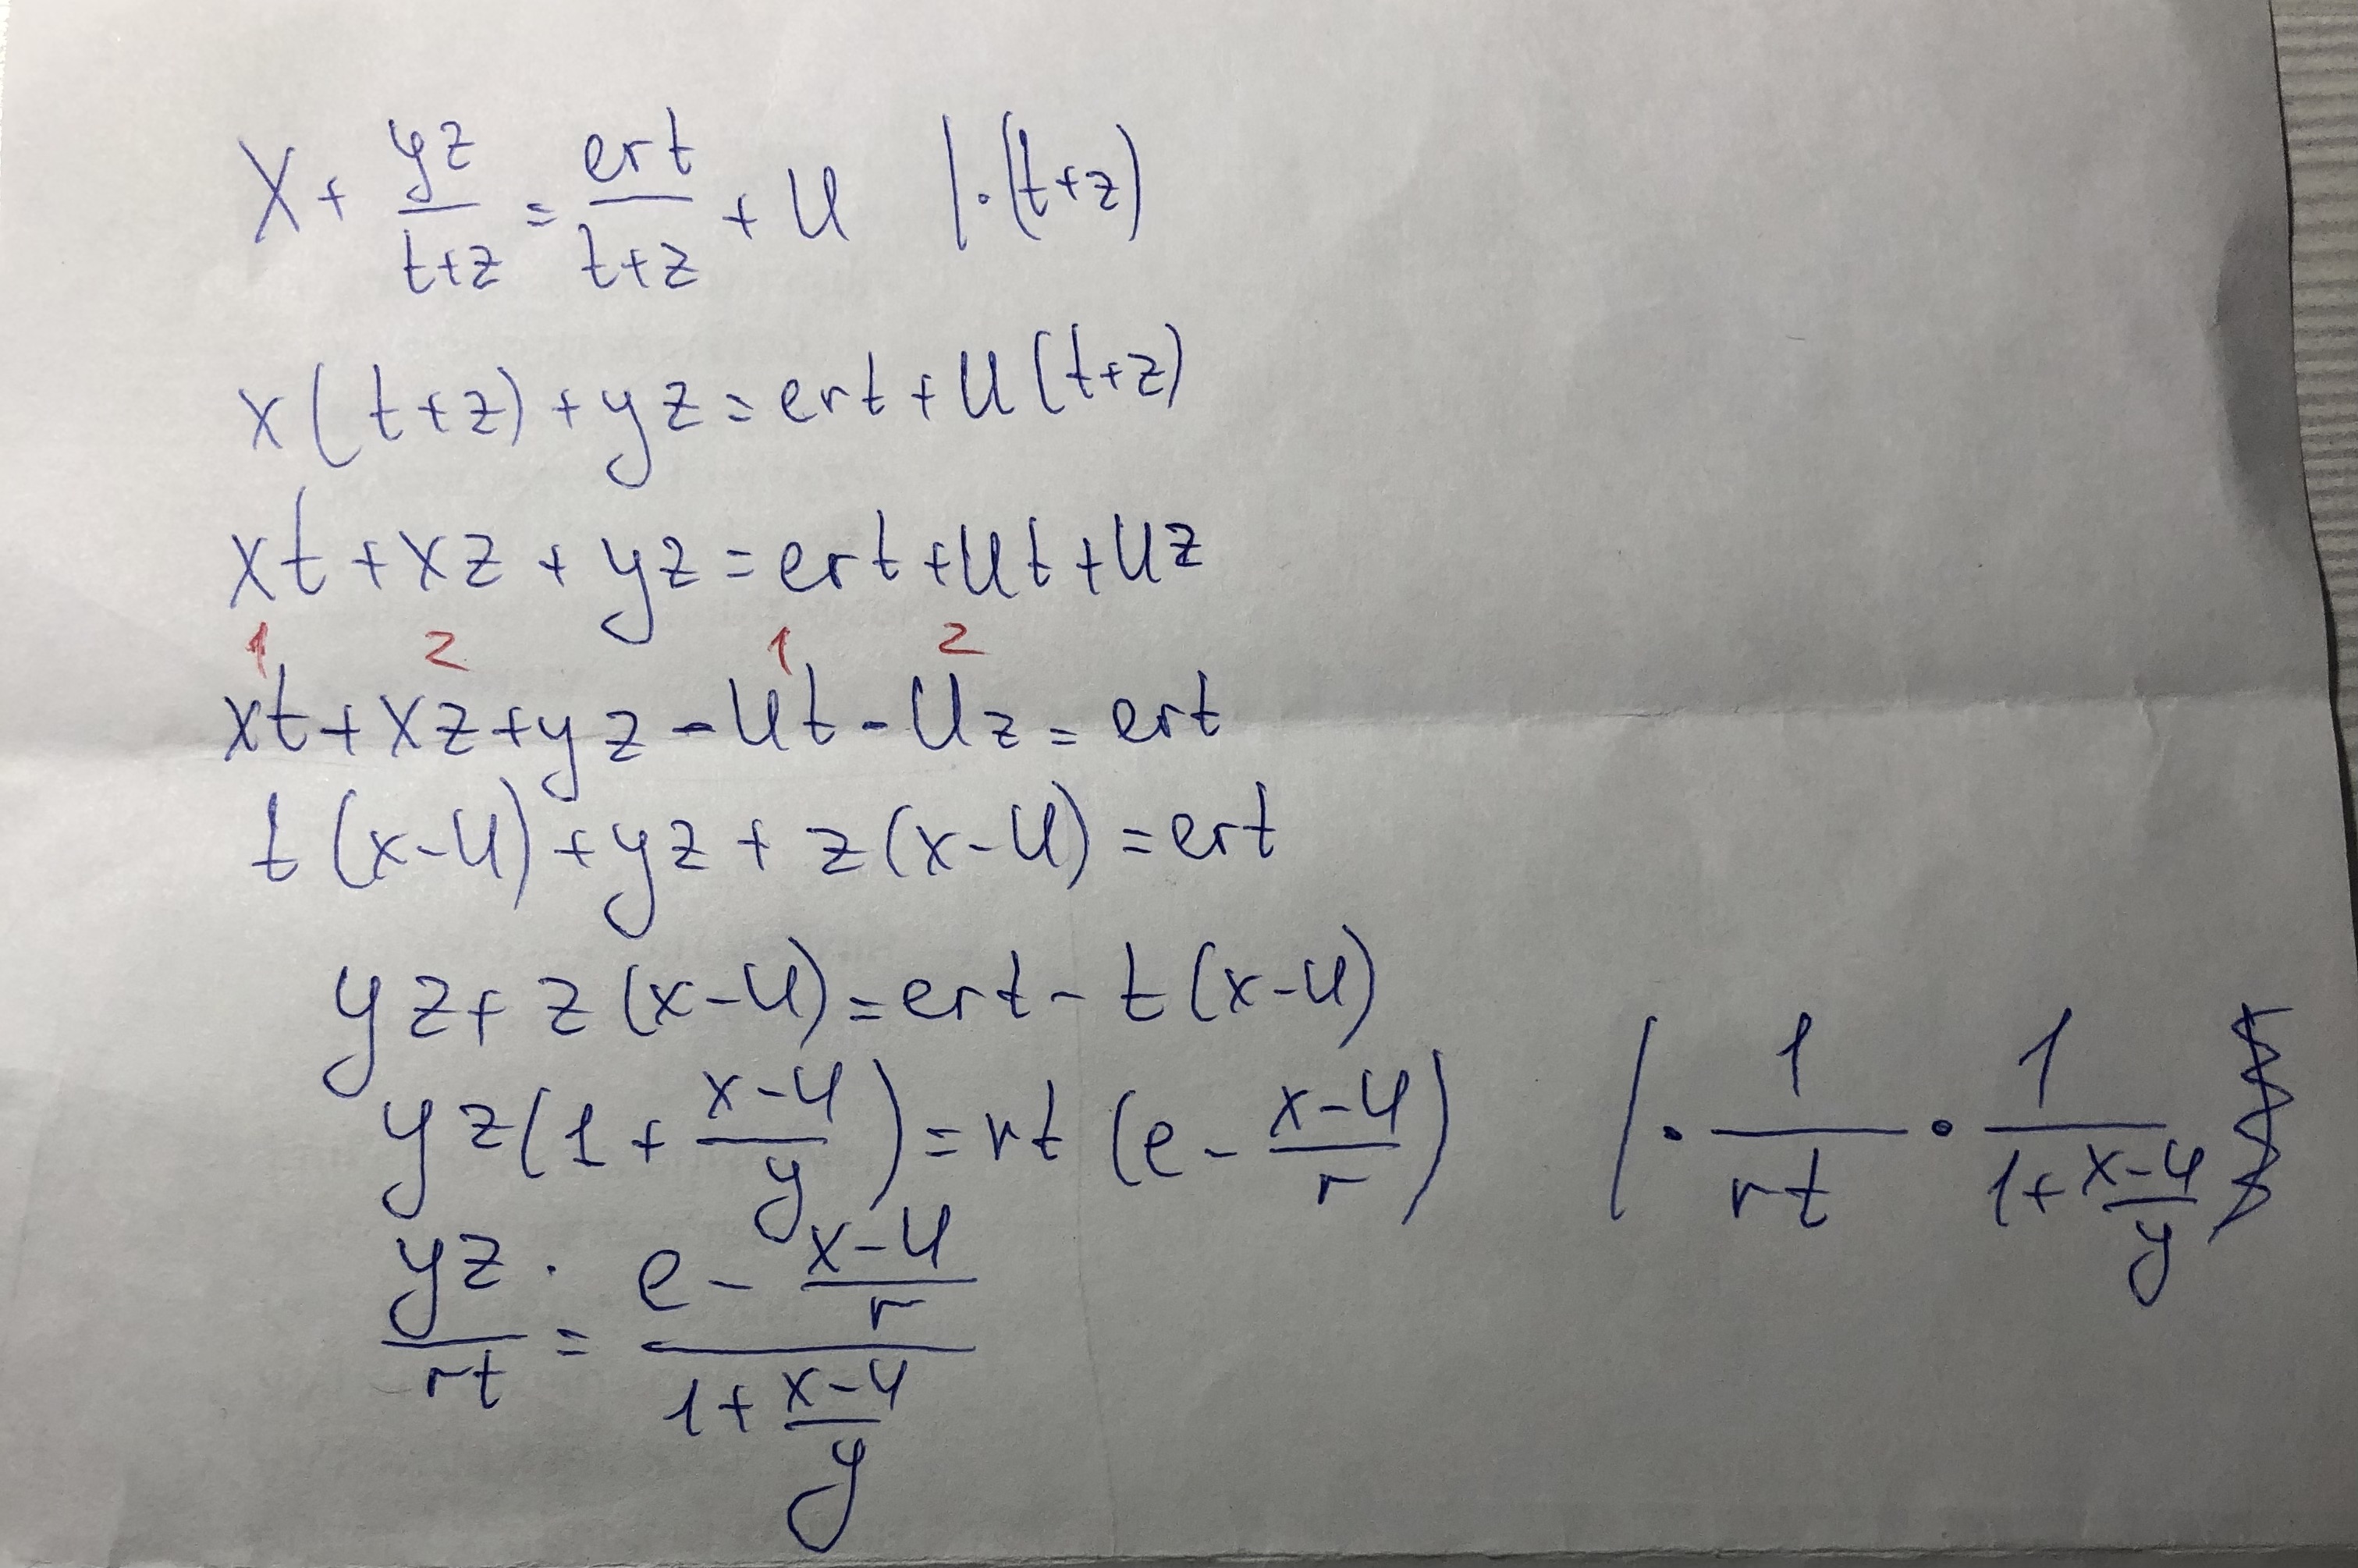 x + yz/(t+z) = ert/(t+z) + u |·(t+z)
x(t+z)+yz=ert+u(t+z)
xt+xz+yz=ert+ut+uz
1 2 1 2
xt+xz+yz-ut-uz=ert
t(x-u)+yz+z(x-u)=ert
yz+z(x-u)=ert-t(x-u)
yz(1+(x-u)/y)=rt(e-(x-u)/r) |·1/(rt)·1/(1+(x-u)/y)
yz/(rt) = (e-(x-u)/r)/(1+(x-u)/y)